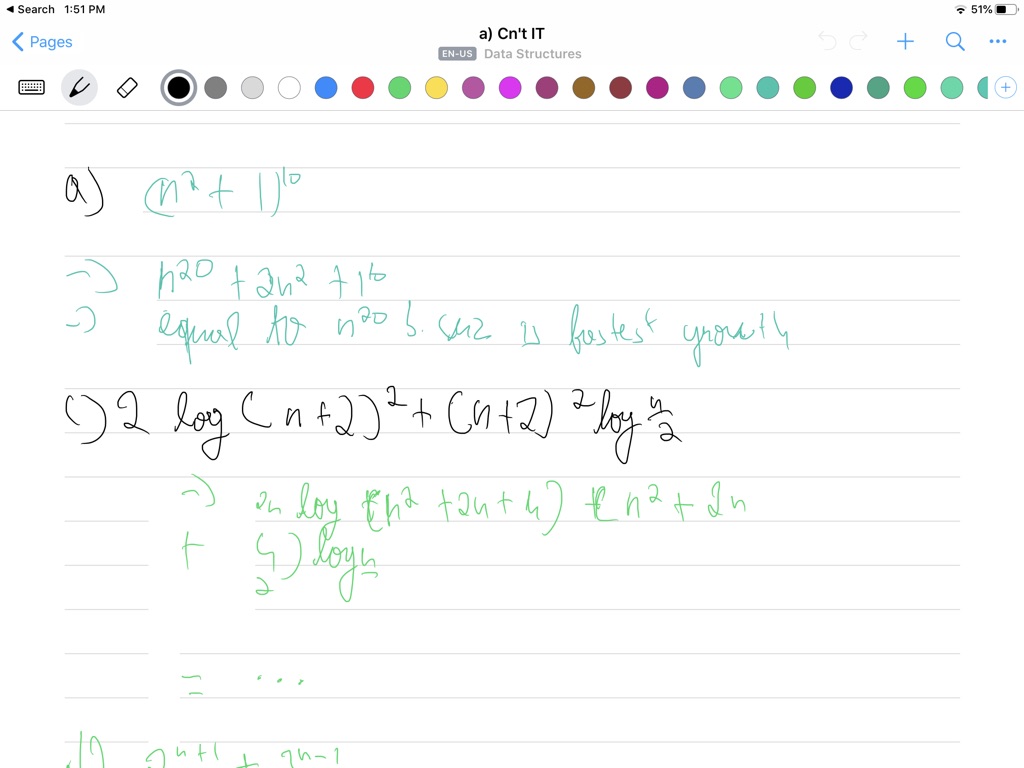 Search 1:51 PM 51%
Pages a) Cn't IT
EN-US Data Structures
a) (n² + 1)¹⁰
→) n²⁰ + 2n² + 1¹⁰
→) equal to n²⁰ is fastest growth
c) 2 log (n+2)² + (n+2)² log n/2
→) 2n log (n² + 2n + 4) + (n² + 2n
+ 4) log n
2
= ...
d) 2ⁿ⁺¹ + 3ⁿ⁻¹